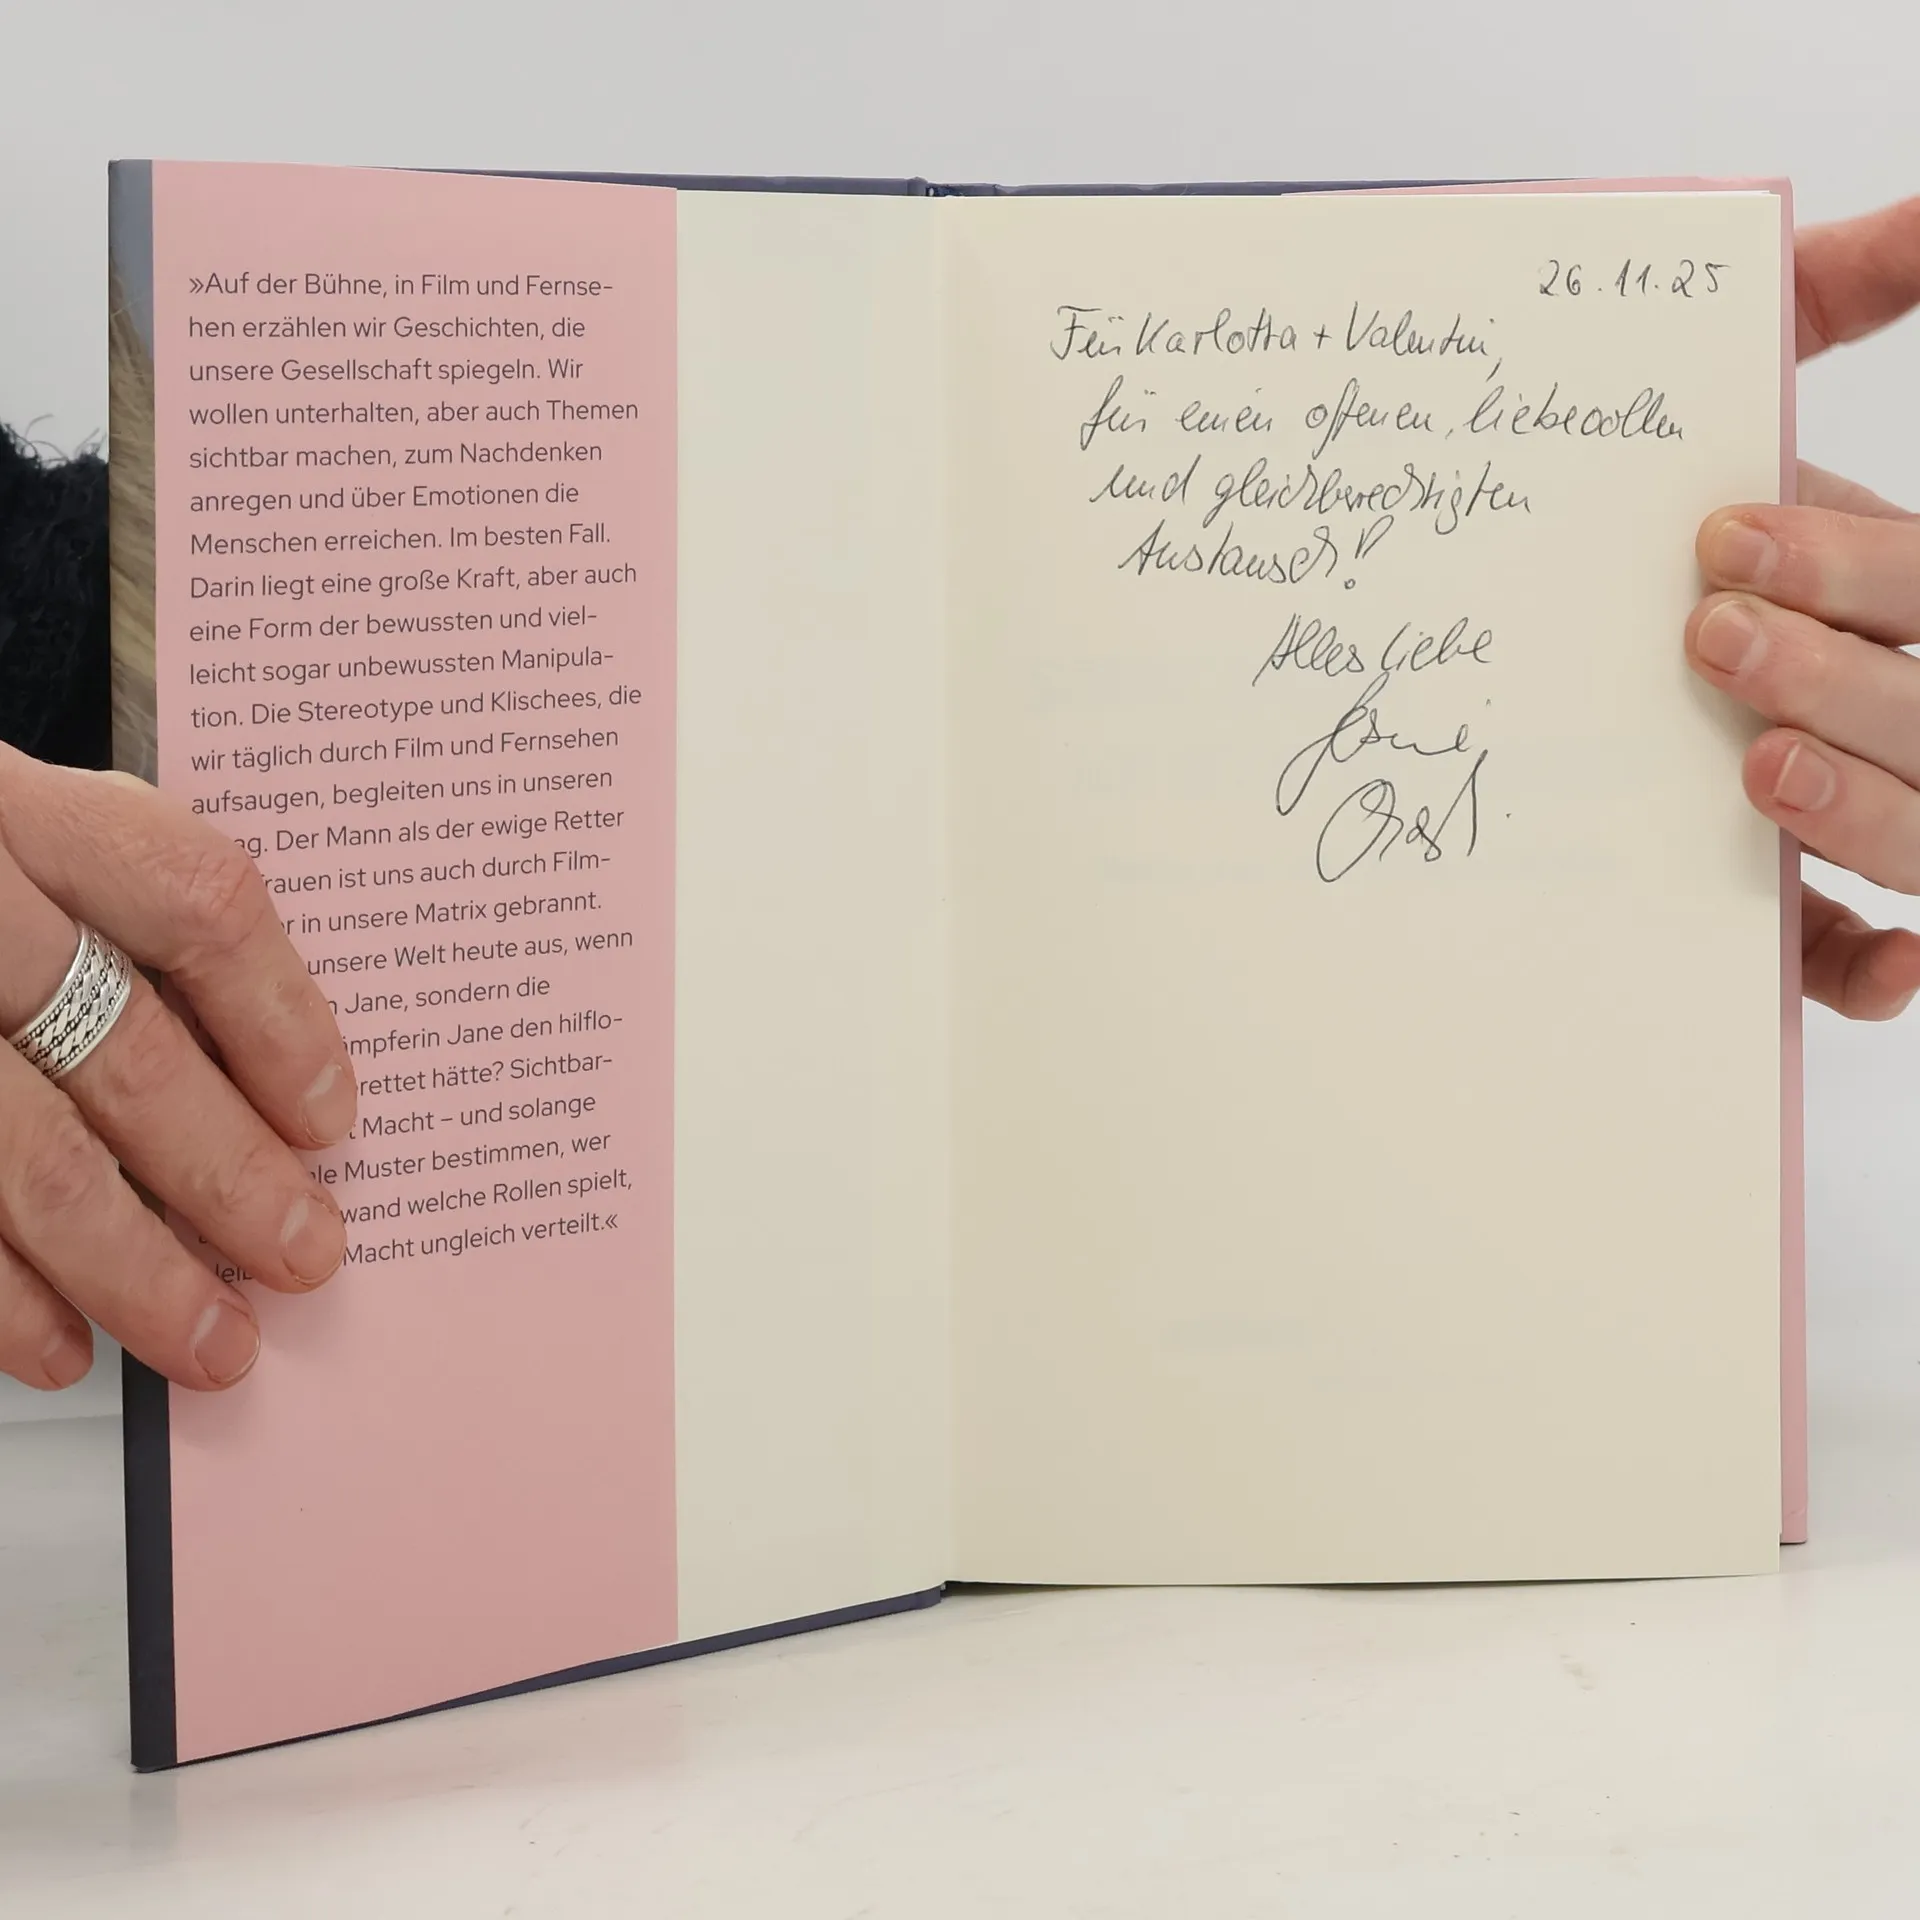 »Auf der Bühne, in Film und Fernse-
hen erzählen wir Geschichten, die
unsere Gesellschaft spiegeln. Wir
wollen unterhalten, aber auch Themen
sichtbar machen, zum Nachdenken
anregen und über Emotionen die
Menschen erreichen. Im besten Fall.
Darin liegt eine große Kraft, aber auch
eine Form der bewussten und viel-
leicht sogar unbewussten Manipula-
tion. Die Stereotype und Klischees, die
wir täglich durch Film und Fernsehen
aufsaugen, begleiten uns in unseren
ag. Der Mann als der ewige Retter
rauen ist uns auch durch Film-
r in unsere Matrix gebrannt.
unsere Welt heute aus, wenn
n Jane, sondern die
ämpferin Jane den hilflo-
rettet hätte? Sichtbar-
t Macht – und solange
ale Muster bestimmen, wer
wand welche Rollen spielt,
Macht ungleich verteilt.«
26.11.25
Für Karlotta + Valentin,
für einen offenen, liebevollen
und gleichberechtigten
Austausch!
Alles Liebe